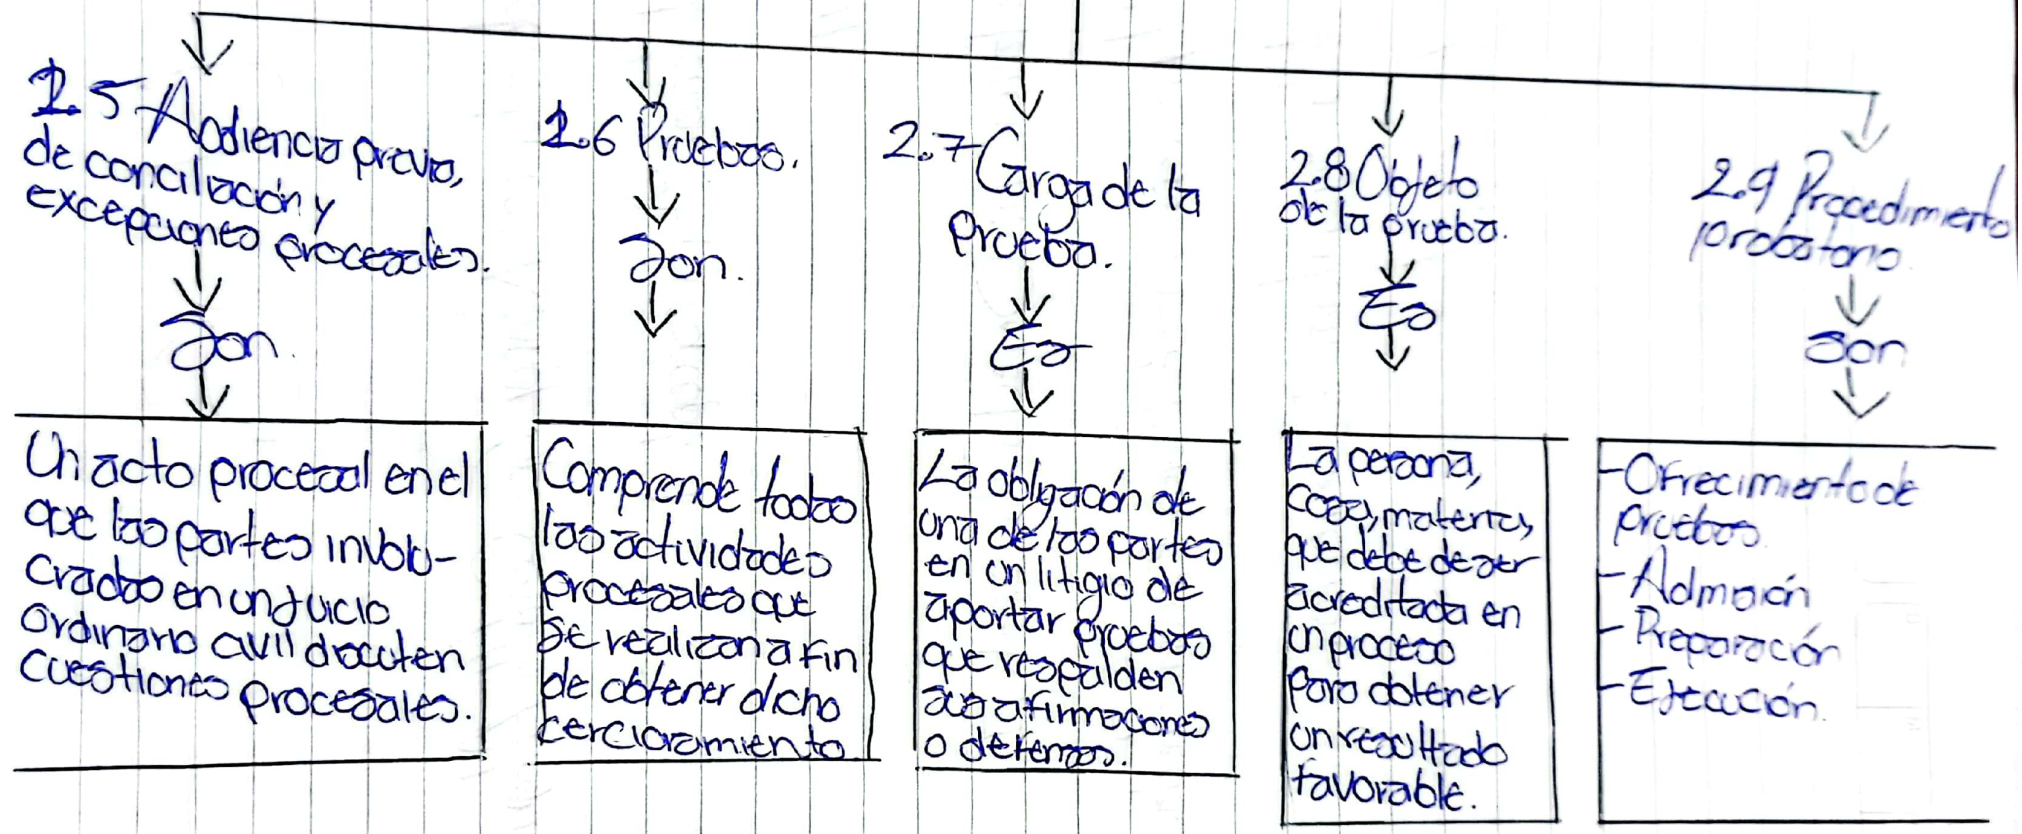 2.5 Audiencia previa,
de conciliación y
excepciones procesales.
Son.
Un acto procesal en el
que las partes involu-
cradas en un juicio
Ordinario civil discuten
cuestiones procesales.
2.6 Pruebas.
Son.
Comprende todas
las actividades
procesales que
se realizan a fin
de obtener dicho
cercioramiento
2.7 Carga de la
Prueba.
Es
La obligación de
una de las partes
en un litigio de
aportar pruebas
que respalden
sus afirmaciones
o defensas.
2.8 Objeto
de la prueba.
Es
La persona,
cosa, materia,
que debe de ser
acreditada en
un proceso
para obtener
un resultado
favorable.
2.9 Procedimiento
probatorio
Son
-Ofrecimiento de
pruebas.
-Admisión
-Preparación
-Ejecución.